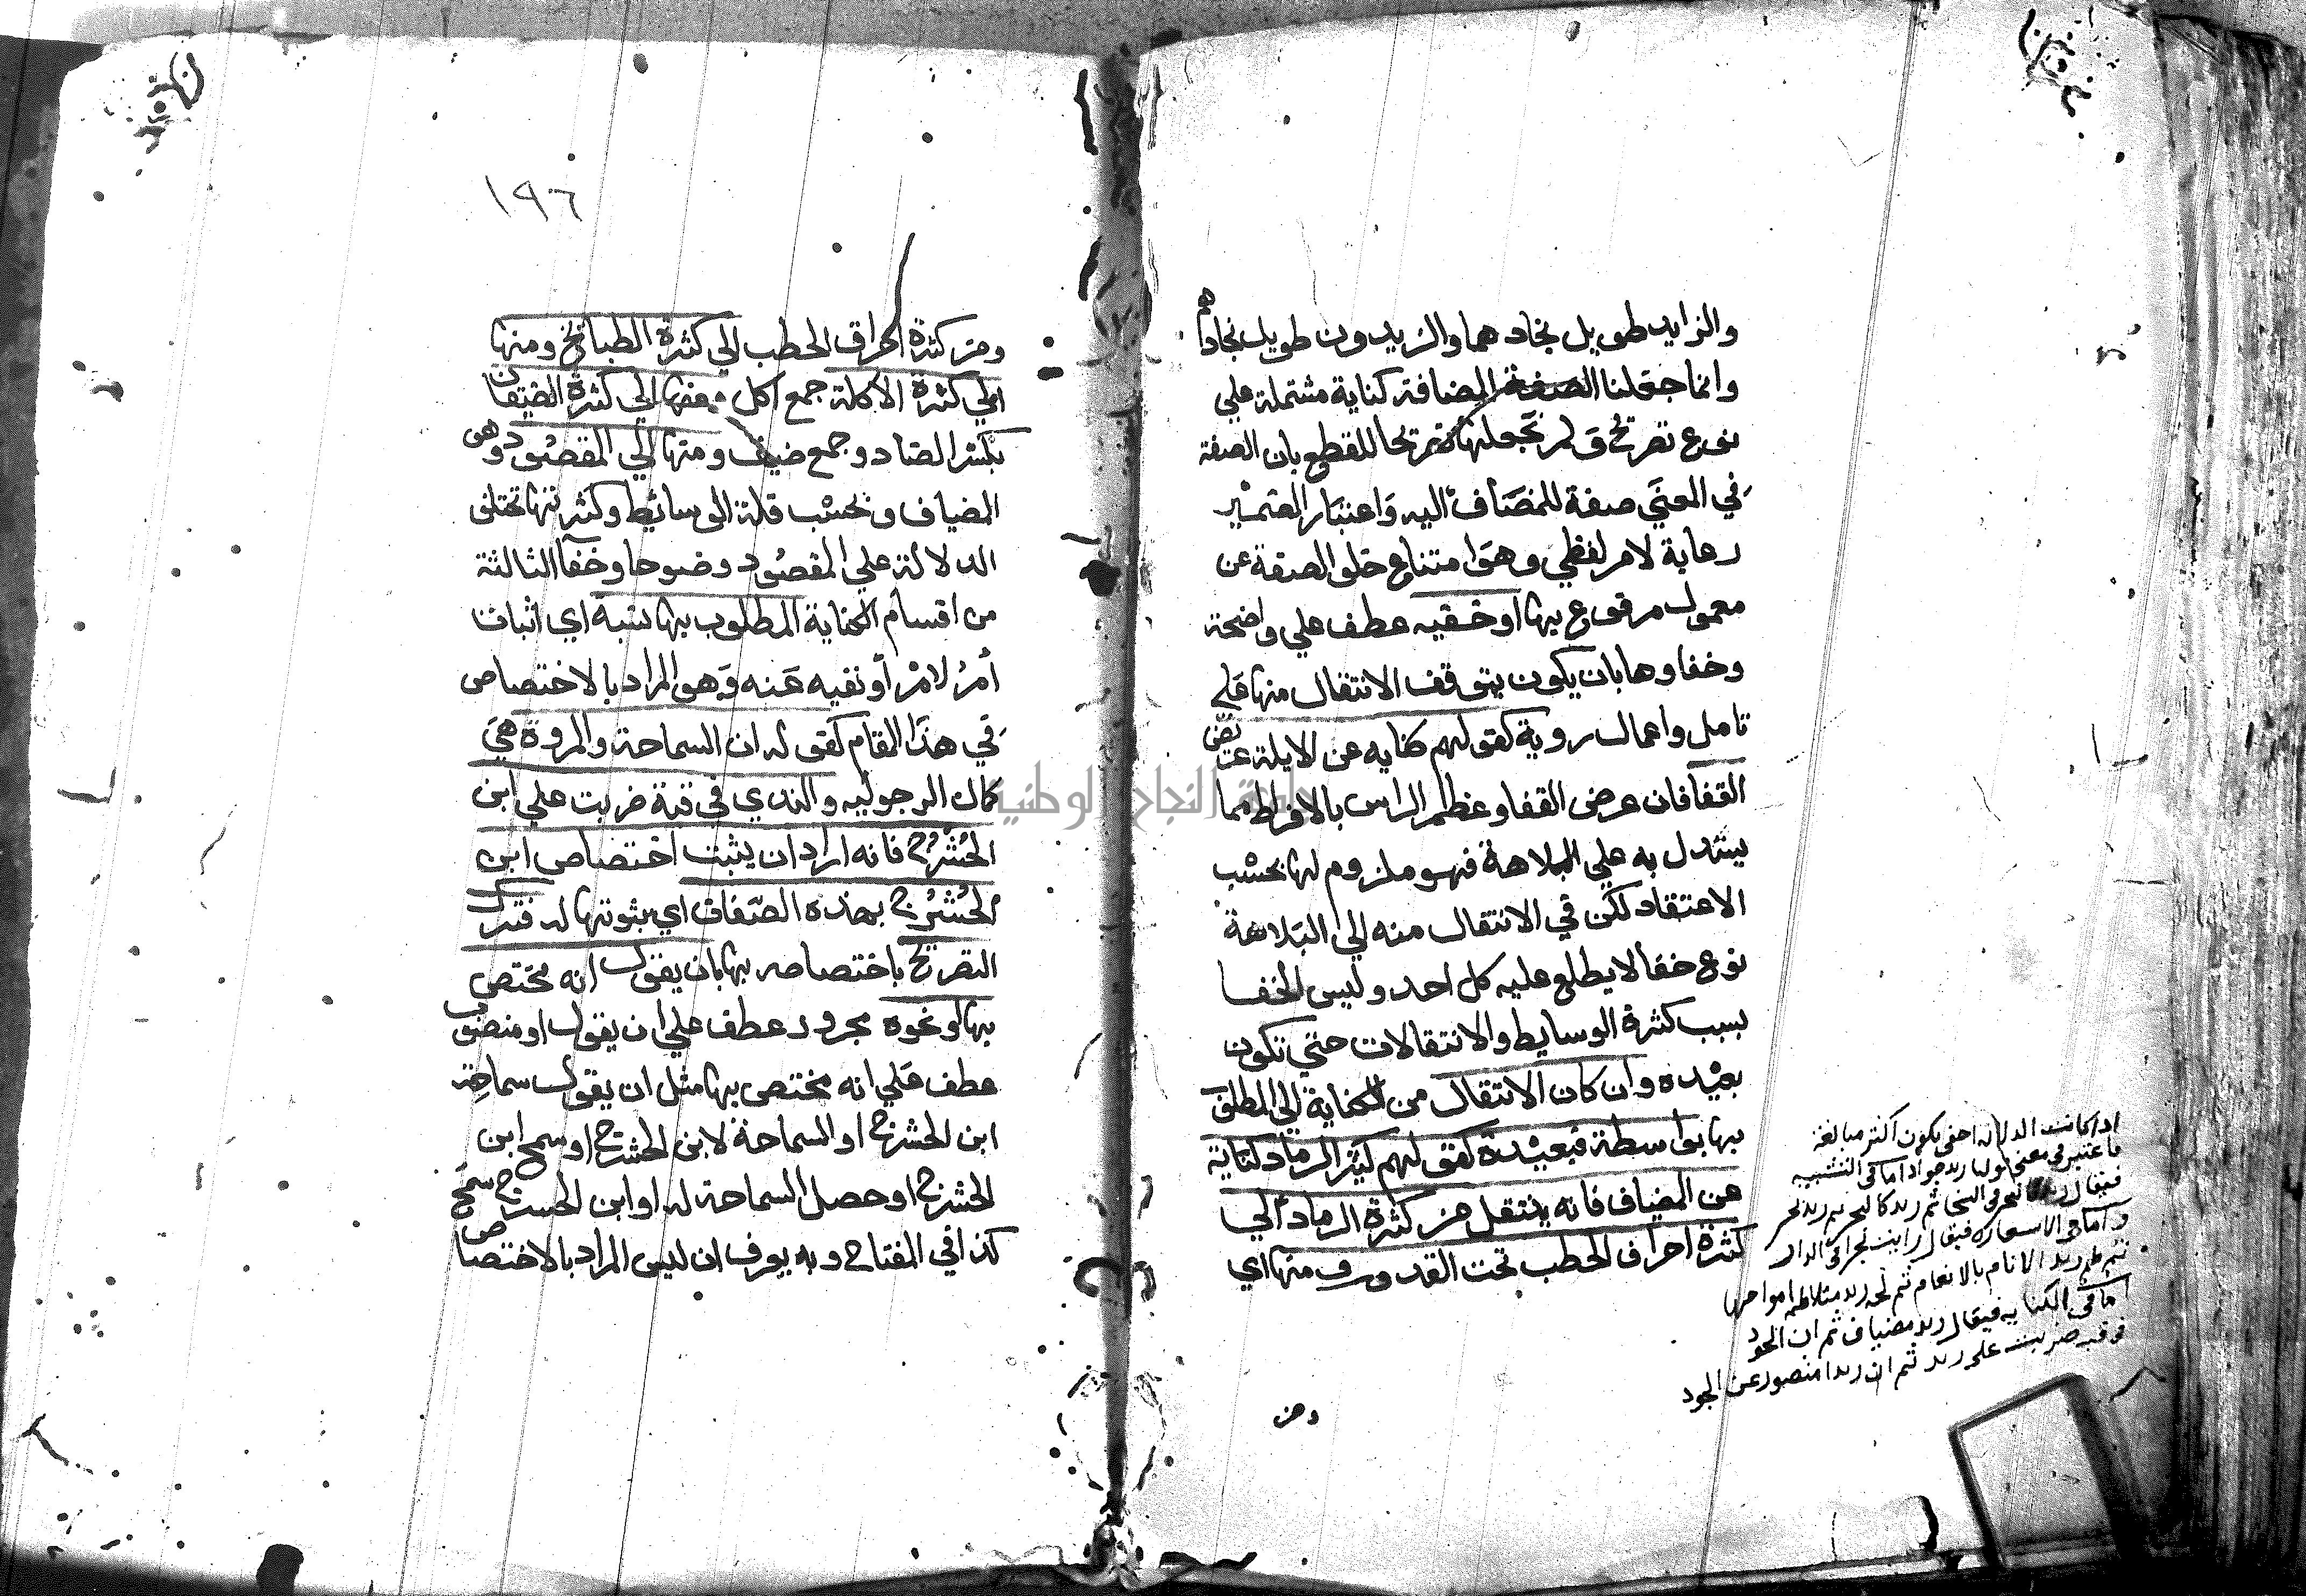 والزايد طويل نجاد هما والزيدون طويل نجادهم
وانما جعلنا الصفة المضافة كناية مشتملة علي
نوع تصريح ولم نجعلها تصريحا للقطع بان الصفة
في المعني صفة للمضاف اليه واعتبار الضمير
رعاية لامر لفظي وهو امتناع خلو الصفة عن
معمول مرفوع بها او خفيه عطف علي واضحة
وخفاوها بان يكون يتوقف الانتقال منها علي
تامل واعمال روية كقولهم كنايه عن الابلة عريض
القفا فان عرض القفا وعظم الراس بالافراط مما
يستدل به علي البلاهة فهو ملزوم لها بحسب
الاعتقاد لكن في الانتقال منه الي البلاهة
نوع خفا لا يطلع عليه كل احد وليس الخفا
بسبب كثرة الوسايط والانتقالات حتي تكون
بعيده وان كان الانتقال من الكناية الي المطلوب
بها بواسطة فبعيدة كقولهم كثير الرماد كناية
عن المضياف فانه ينتقل من كثرة الرماد الي
كثرة احراق الحطب تحت القدور ومنها اي
ومن
اذا كانت الدلالة اخفي يكون اكثر مبالغة
فاعتبر في معني قولنا زيد جواد اما في التشبيه
فيقال زيد كالبحر في السخا ثم زيد كالبحر ثم زيد بحر
واما في الاستعارة فيقال رايت بحرا في الدار
ثم طم زيد الانام بالانعام ثم لجة زيد متلاطم امواجها
اما في الكناية فيقال زيد مضياف ثم ان الجود
في قبة ضربت علي زيد ثم ان زيدا عن الجود
١٩٦
ومن كثرة احراق الحطب الي كثرة الطبايخ ومنها
اي كثرة الاكلة جمع اكل ومنها الي كثرة الضيفان
بكسر الضاد وجمع ضيف ومنها الي المقصود وهو
المضياف وبحسب قلة الوسائط وكثرتها تختلف
الدلالة علي المقصود وضوحا وخفا الثالثة
من اقسام الكناية المطلوب بها نسبة اي اثبات
أمر لامر أو نفيه عنه وهو المراد بالاختصاص
في هذا المقام كقوله ان السماحة والمروة هي
كمال الرجوليه والندي في قبة ضربت علي ابن
الحشرج فانه اراد ان يثبت اختصاص ابن
الحشرج بهذه الصفات اي ثبوتها له فترك
التصريح باختصاصه بها بان يقول انه مختص
بها او نحوه مجرور عطف علي ان يقول او منصوب
عطف علي انه مختص بها مثل ان يقول سماحة
ابن الحشرج او السماحة لابن الحشرج او سمح ابن
الحشرج او حصل السماحة له او ابن الحشرج سمح
كذا في المفتاح وبه يعرف ان ليس المراد بالاختصاص
جامعة النجاح الوطنية